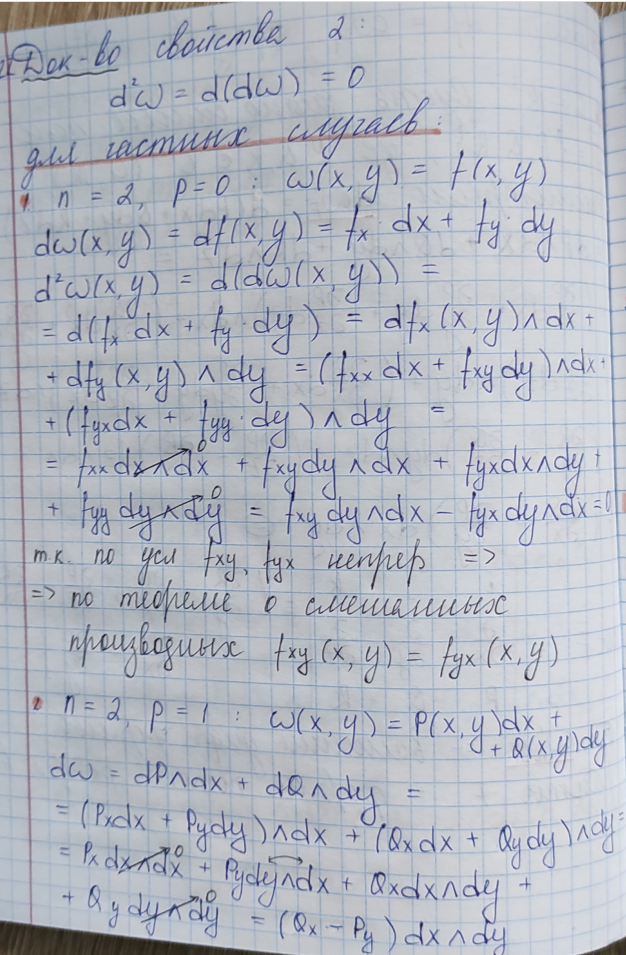 Док-во свойства 2:
d²ω = d(dω) = 0
для частных случаев:
• n = 2, p = 0 : ω(x, y) = f(x, y)
dω(x, y) = df(x, y) = fx · dx + fy · dy
d²ω(x, y) = d(dω(x, y)) =
= d(fx dx + fy · dy) = dfx (x, y) ∧ dx +
+ dfy (x, y) ∧ dy = (fxx dx + fxy dy) ∧ dx +
+ (fyx dx + fyy · dy) ∧ dy =
= fxx dx ∧ dx⁰ + fxy dy ∧ dx + fyx dx ∧ dy +
+ fyy dy ∧ dy⁰ = fxy dy ∧ dx − fyx dy ∧ dx = 0
т.к. по усл fxy, fyx непрер =>
=> по теореме о смешанных
производных fxy (x, y) = fyx (x, y)
• n = 2, p = 1 : ω(x, y) = P(x, y)dx +
+ Q(x, y)dy
dω = dP ∧ dx + dQ ∧ dy =
= (Px dx + Py dy) ∧ dx + (Qx dx + Qy dy) ∧ dy =
= Px dx ∧ dx⁰ + Py dy ∧ dx + Qx dx ∧ dy +
+ Qy dy ∧ dy⁰ = (Qx − Py) dx ∧ dy